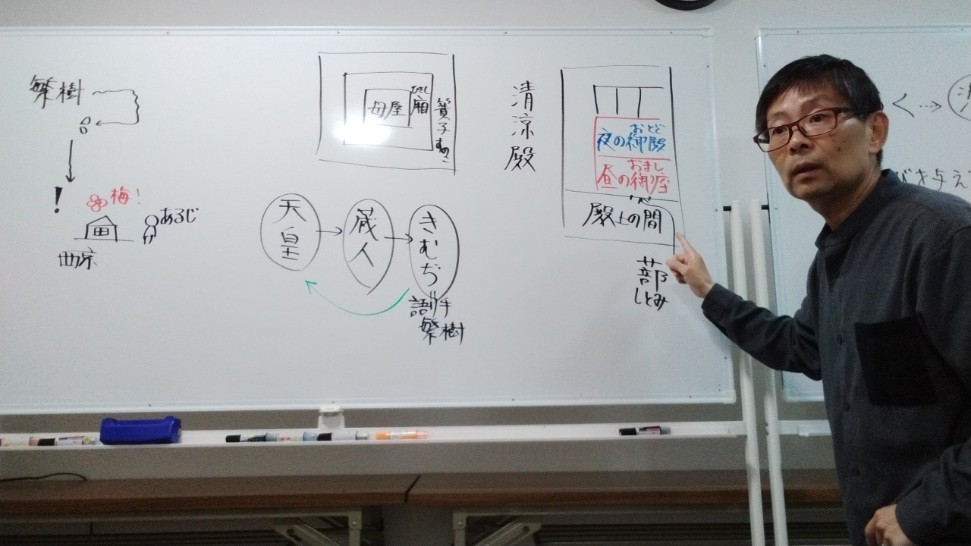 繁樹
!
梅!
あるじ
西京
母屋
廂
簀子
すのこ
天皇
蔵人
きむぢ
語り手
繁樹
清涼殿
おとど
夜の御殿
おまし
昼の御座
殿上の間
蔀
しとみ
く
清
び
与え